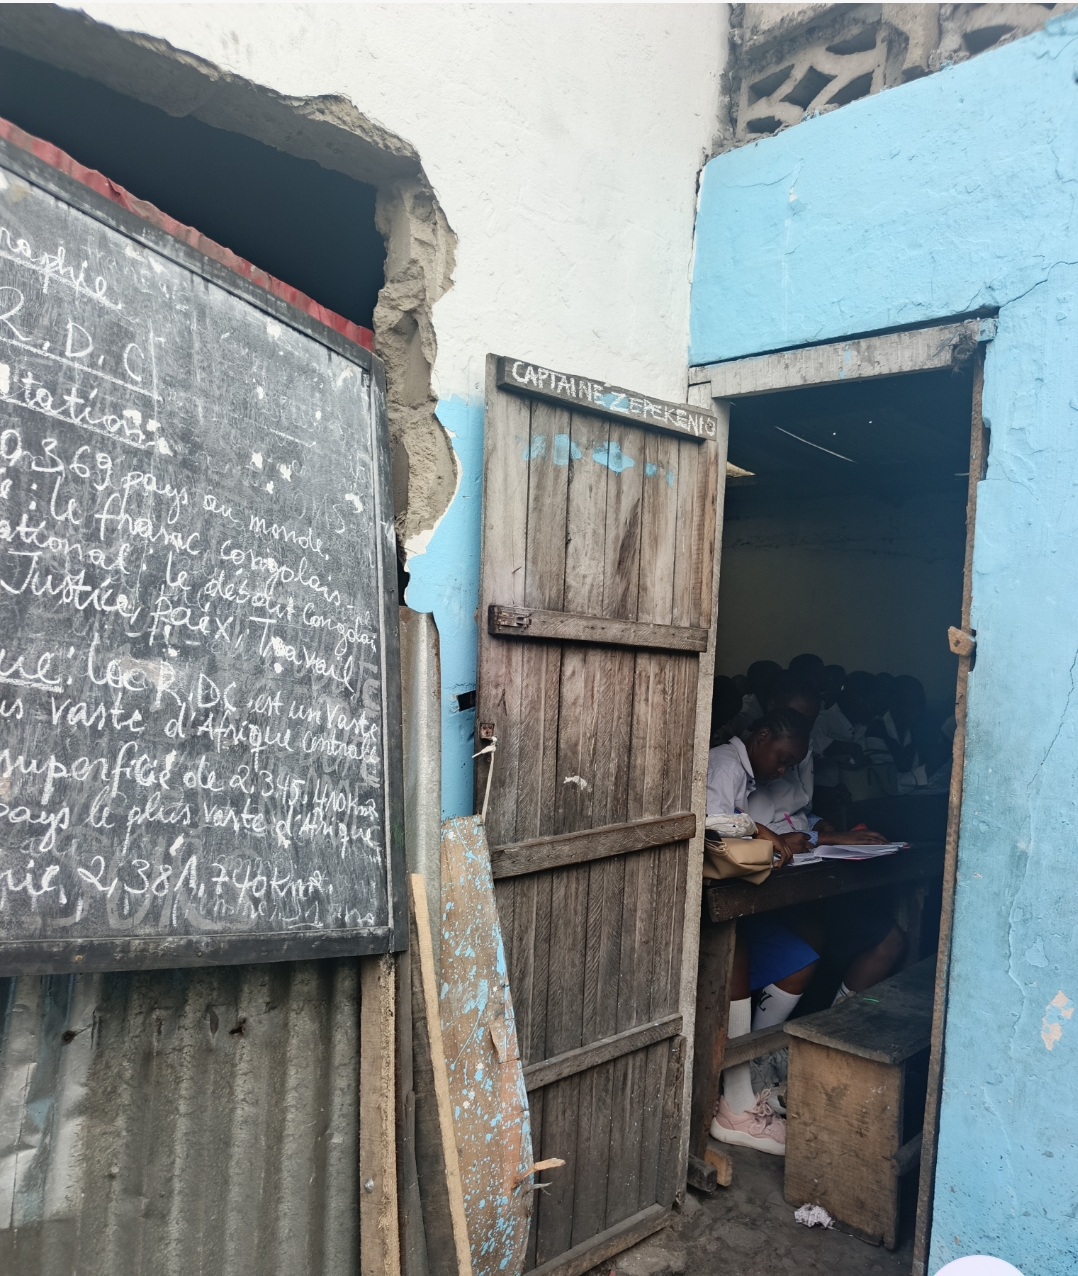 raphie
R.D.C
tation
369 pays au monde.
: le franc congolais.
ational : le debout congolais
Justice, paix, Travail
ue : la R.D.C est un vaste
us vaste d'Afrique centrale
superficie de 2.345.410 km2
pays le plus vaste d'Afrique
rie, 2,381,740 km2.
CAPTAINE ZEPEKENIO